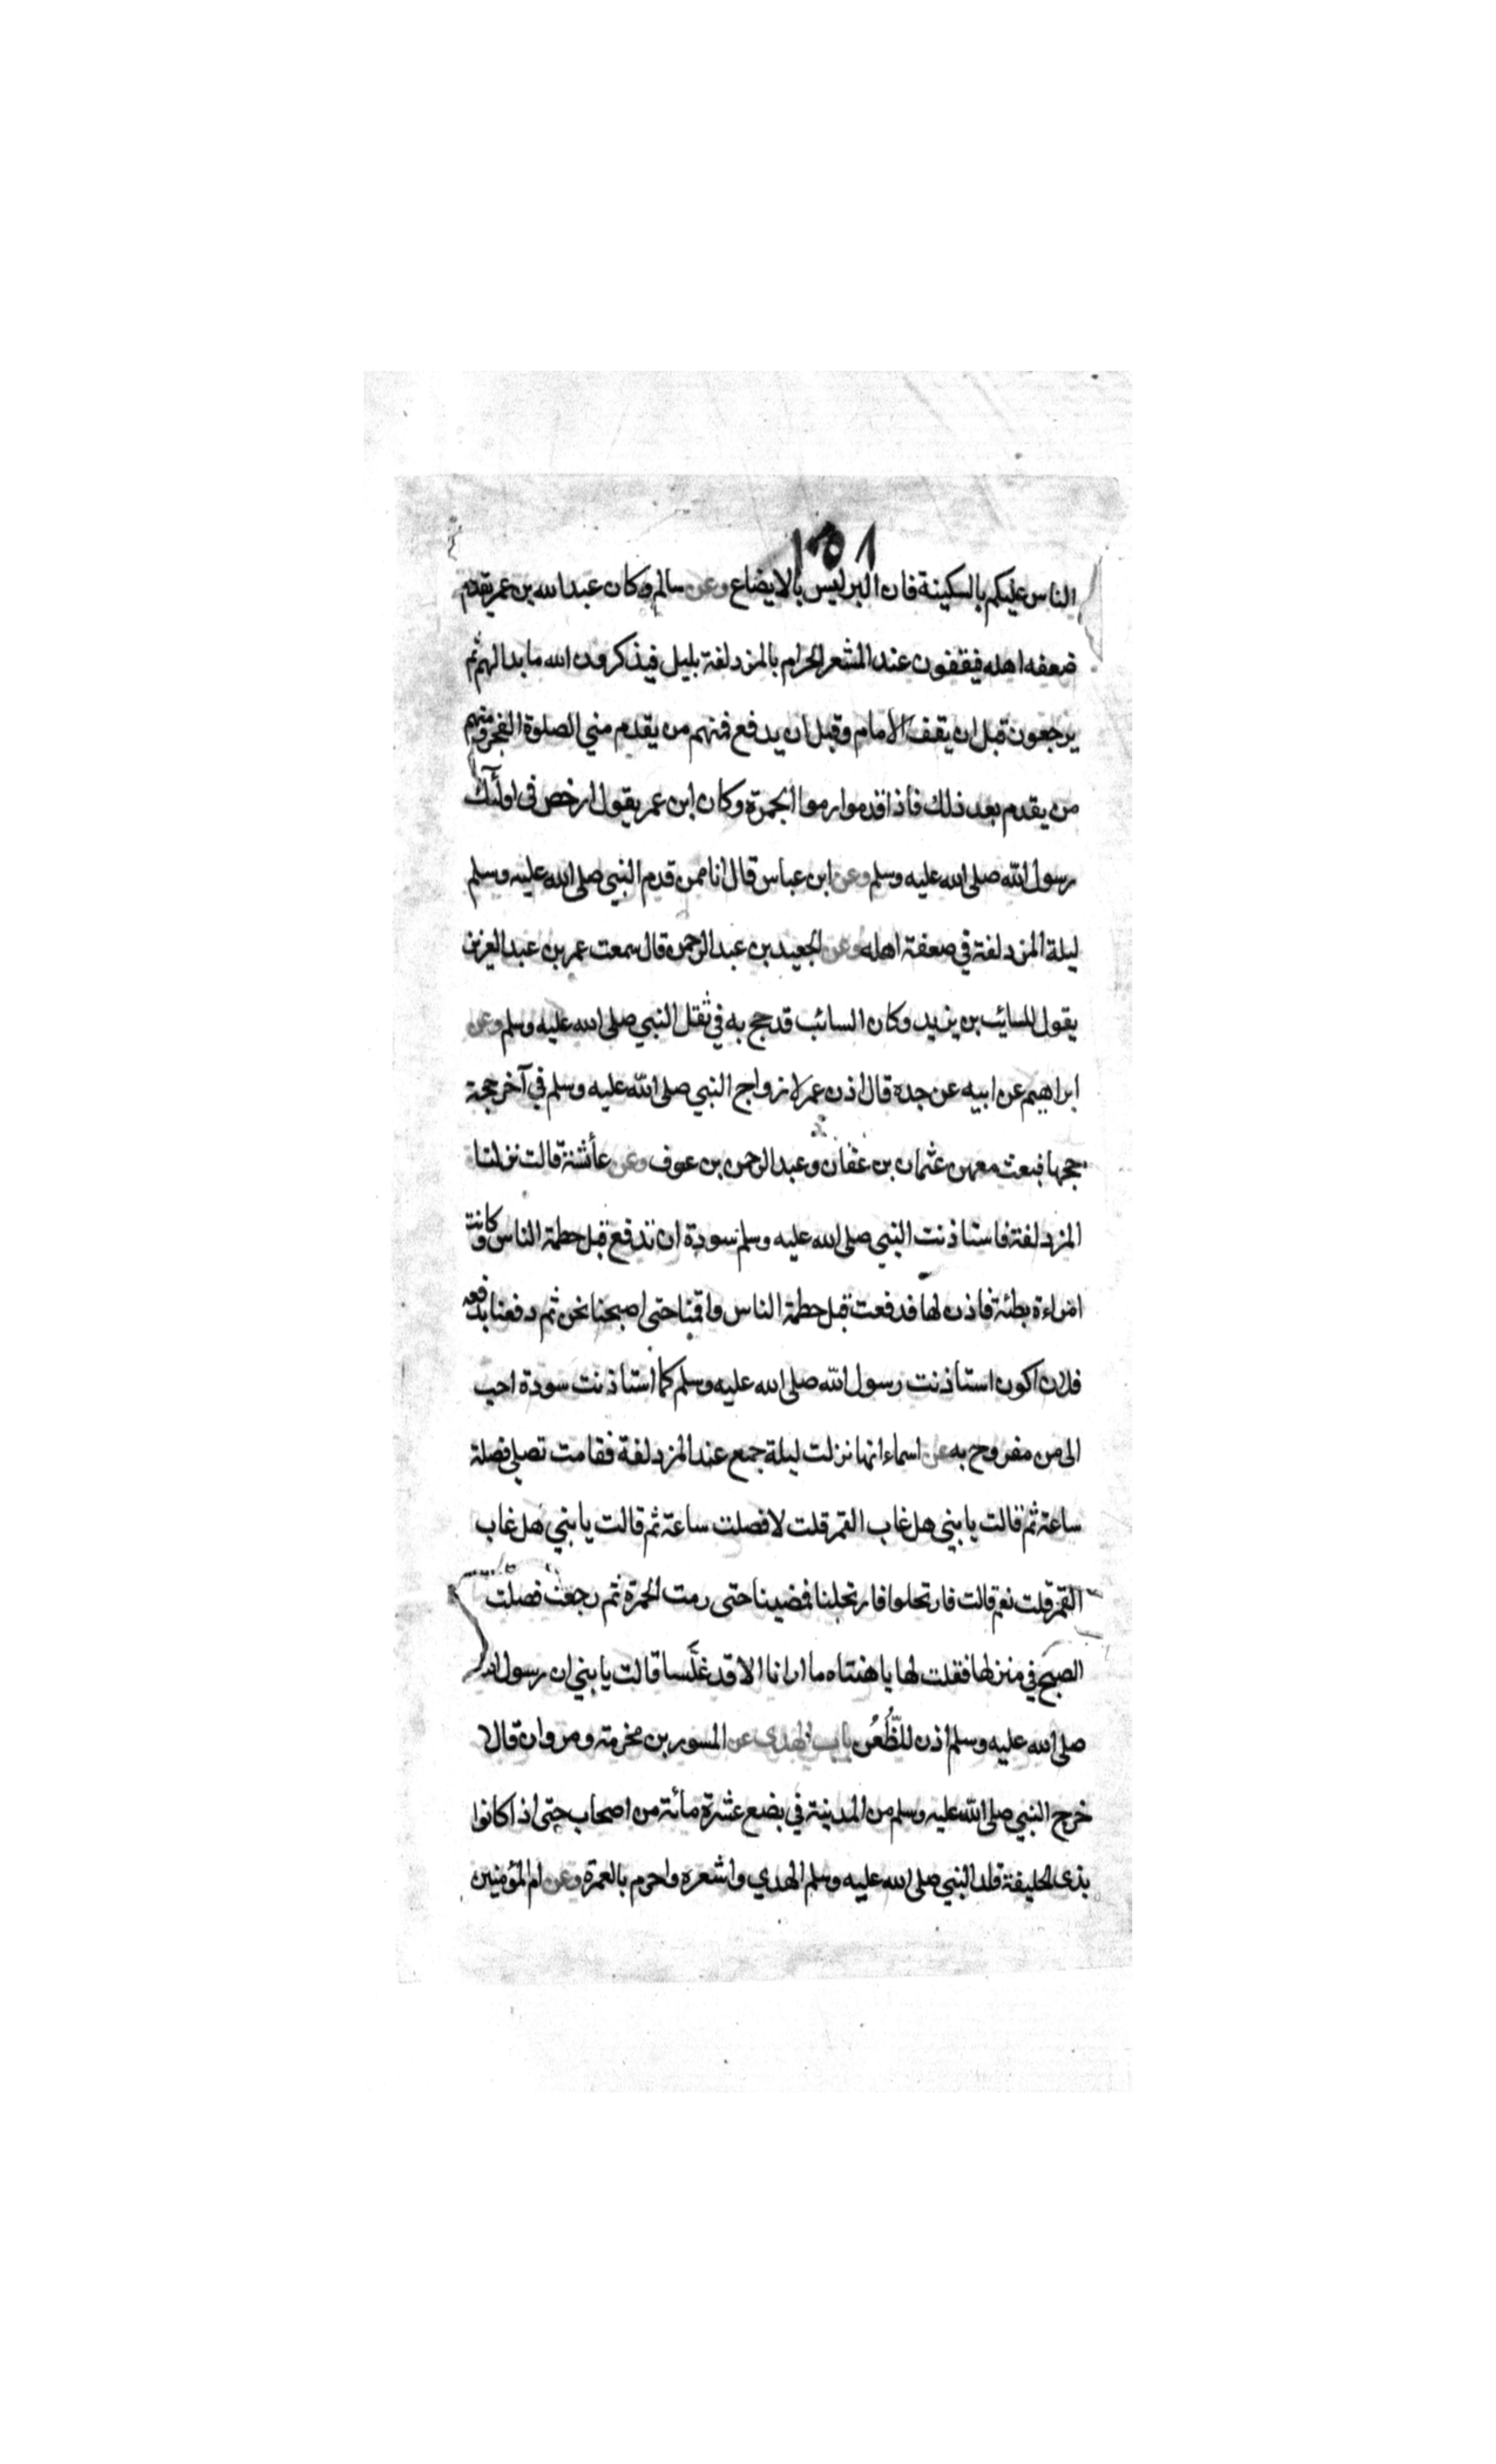 ١٥١
الناس عليكم بالسكينة فان البر ليس بالايضاع وعن سالم وكان عبد الله بن عمر يقدم
ضعفه اهله فيقفون عند المشعر الحرام بالمزدلفة بليل فيذكرون الله ما بدا لهم ثم
يرجعون قبل ان يقف الامام وقبل ان يدفع فمنهم من يقدم مني لصلوة الفجر ومنهم
من يقدم بعد ذلك فاذا قدموا رموا الجمرة وكان ابن عمر يقول ارخص فى اولٰئك
رسول الله صلى الله عليه وسلم وعن ابن عباس قال انا ممن قدم النبي صلى الله عليه وسلم
ليلة المزدلفة في ضعفة اهله وعن الجعيد بن عبد الرحمن قال سمعت عمر بن عبد العزيز
يقول للسائب بن يزيد وكان السائب قد حج به في ثقل النبي صلى الله عليه وسلم وعن
ابراهيم عن ابيه عن جده قال اذن عمر لازواج النبي صلى الله عليه وسلم في آخر حجة
حجها فبعث معهن عثمان بن عفان وعبد الرحمن بن عوف وعن عائشة قالت نزلنا
المزدلفة فاستاذنت النبي صلى الله عليه وسلم سودة ان تدفع قبل حطمة الناس وكانت
امراءة بطئة فاذن لها فدفعت قبل حطمة الناس واقمنا حتى اصبحنا نحن ثم دفعنا بدفعه
فلان اكون استاذنت رسول الله صلى الله عليه وسلم كما استاذنت سودة احب
الى من مفروح به عن اسماء انها نزلت ليلة جمع عند المزدلفة فقامت تصلي فصلة
ساعة ثم قالت يا بني هل غاب القمر قلت لا فصلت ساعة ثم قالت يا بني هل غاب
القمر قلت نعم قالت فارتحلوا فارتحلنا فمضينا حتى رمت الجمرة ثم رجعت فصلت
الصبح في منزلها فقلت لها يا هنتاه ما ارانا الا قد غلّسنا قالت يا بني ان رسول الله
صلى الله عليه وسلم اذن للظُّعُن باب الهدي عن المسور بن مخرمة ومروان قالا
خرج النبي صلى الله عليه وسلم من المدينة في بضع عشرة مائة من اصحاب حتى اذا كانوا
بذى الحليفة قلد النبي صلى الله عليه وسلم الهدي واشعره واحرم بالعمرة وعن ام المؤمنين